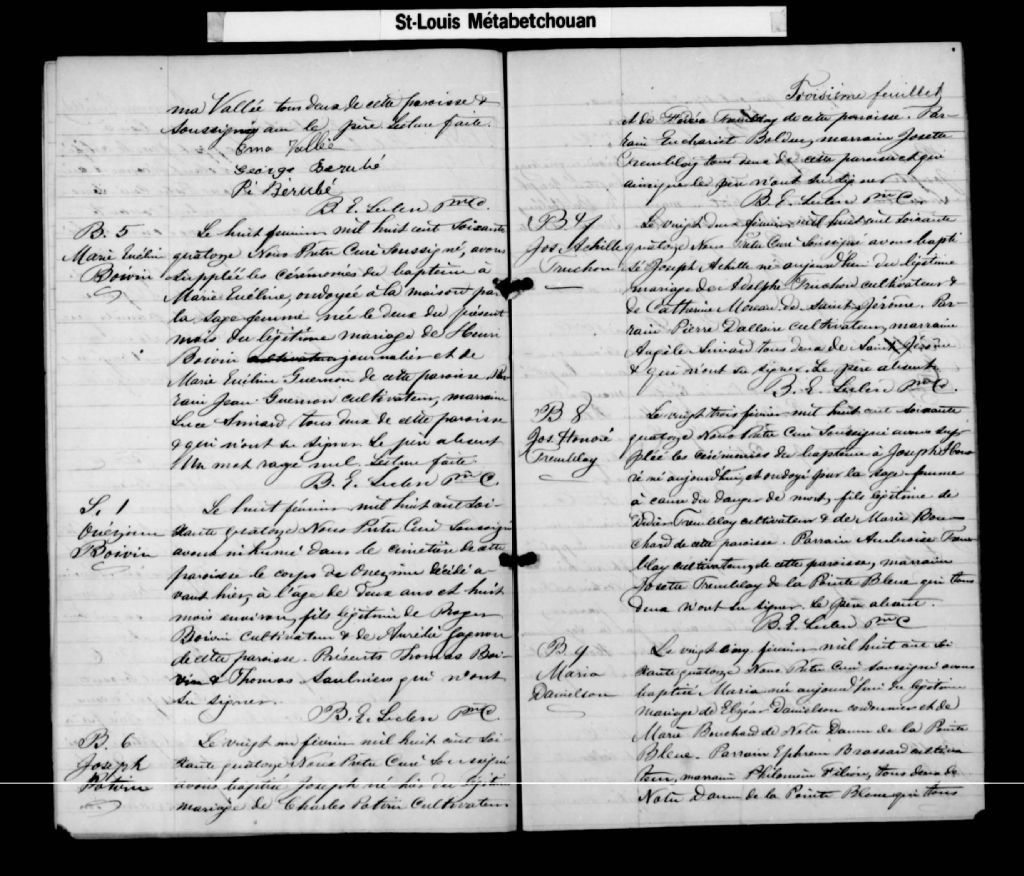 St-Louis Métabetchouan
ma Vallée tous deux de cette paroisse &
soussignés avec le père. Lecture faite.
Ema Vallée
George Berubé
Pé Bérubé
B. E. Leclerc Ptre C.
B. 5
Marie Eveline
Boivin
Le huit février mil huit cent soixante
quatorze Nous Prêtre Curé soussigné, avons
suppléé les cérémonies du baptême à
Marie Eveline, ondoyée à la maison par
la sage femme née le deux du présent
mois du légitime mariage de Henri
Boivin cultivateur journalier et de
Marie Eveline Guernon de cette paroisse. Par
rain Jean Guernon cultivateur, marraine
Luce Simard tous deux de cette paroisse
& qui n'ont su signer. Le père absent
Un mot rayé nul. Lecture faite.
B. E. Leclerc Ptre C.
S. 1
Onézime
Boivin
Le huit février mil huit cent soi-
xante quatorze Nous Prêtre Curé soussigné
avons inhumé dans le cimetière de cette
paroisse le corps de Onézime décédé a-
vant hier, à l'âge de deux ans et huit
mois environ, fils légitime de Roger
Boivin cultivateur & de Aurélie Gagnon
de cette paroisse. Présents Thomas Boi-
vin & Thomas Saulniers qui n'ont
su signer.
B. E. Leclerc Ptre C.
B. 6
Joseph
Potvin
Le vingt un février mil huit cent soi-
xante quatorze Nous Prêtre Curé soussigné
avons baptisé Joseph né hier du légitime
mariage de Charles Potvin cultivateur
Troisième feuillet
& de Tremblay de cette paroisse. Par-
rain Eucharist Bolduc, marraine Josette
Tremblay tous deux de cette paroisse et qui
ainsi que le père n'ont su signer
B. E. Leclerc Ptre C.
B 7
Jos. Achille
Truchon
Le vingt deux février, mil huit cent soixante
quatorze Nous Prêtre Curé soussigné avons bapti
sé Joseph Achille né aujourd'hui du légitime
mariage de Adolphe Truchon cultivateur &
de Catherine de Saint Jérôme. Par
rain Pierre Dallaire cultivateur, marraine
Angèle Simard tous deux de Saint Jérôme
& qui n'ont su signer. Le père absent
B. E. Leclerc Ptre C.
B 8
Jos. Honoré
Tremblay
Le vingt trois février mil huit cent soixante
quatorze Nous Prêtre Curé soussigné avons sup
pléé les cérémonies du baptême à Joseph Hono
ré né aujourd'hui, et ondoyé par la sage-femme
à cause du danger de mort, fils légitime de
Didier Tremblay cultivateur & de Marie Bou-
chard de cette paroisse. Parrain Ambroise Trem
blay cultivateur, de cette paroisse, marraine
Josette Tremblay de la Pointe Bleue qui tous
deux n'ont su signer. Le père absent.
B. E. Leclerc Ptre C
B 9
Maria
Danielson
Le vingt cinq février mil huit cent soi
xante quatorze Nous Prêtre Curé soussigné avons
baptisé Maria née aujourd'hui du légitime
mariage de Elzéar Danielson cordonnier et de
Marie Bouchard de Notre Dame de la Pointe
Bleue. Parrain Ephrem Brassard cultiva
teur, marraine Philomène Filion, tous deux de
Notre Dame de la Pointe Bleue qui tous